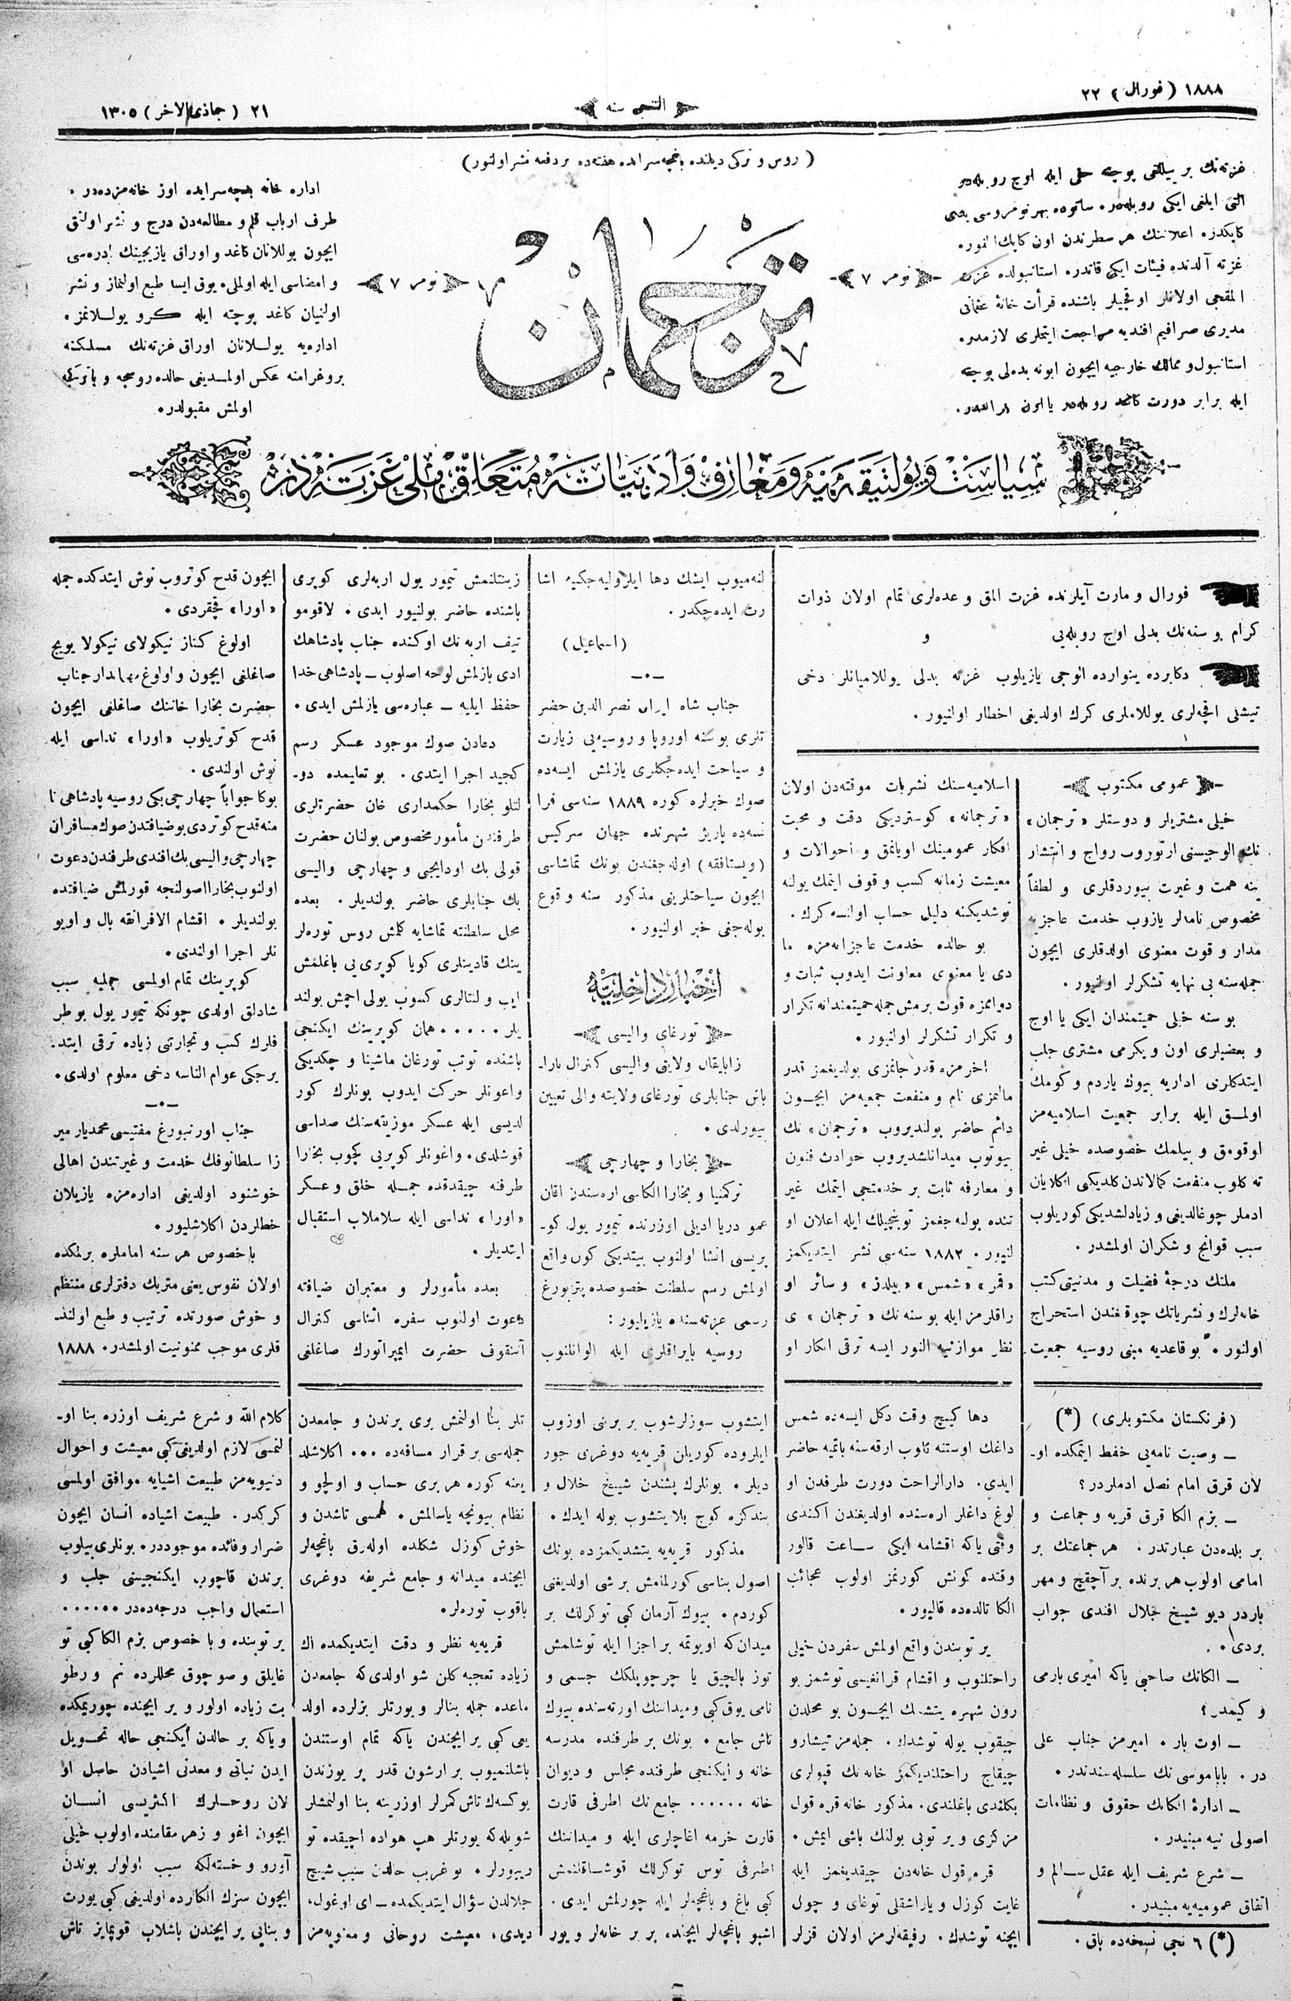 ۱۸۸۸ ( فورال ) ۲۲
التنجی سنه
۲۱ ( جمادی الاخر ) ۱۳۰۵
( روس و ترکی دیلنده باغچه سرایده هفته ده بر دفعه نشر اولنور )
غزته نك بر ییللقی پوچته حقی ایله اوچ روبله در
التی ایلغی ایکی روبله در. ساتوده بهر نومروسی یتمی
کاپکدر. اعلاننك هر سطرندن اون کاپك النور.
غزته آلدنده فیئات ایکی قاتدر. استانبولده غزته
مدیری صرافیم افندیه مراجعت ایتملری لازمدر.
استانبول و ممالك خارجیه ایچون ابونه بدلی پوچته
ترجمان
نومر ۷
نومر ۷
اداره خانه باغچه سرایده اوز خانه مزده در .
طرف ارباب قلم و مطالعه دن درج و نشر اولنمق
ایچون یوللانان کاغد و اوراق یازیجینك ادره سی
و امضاسی ایله اولملی. یوق ایسا طبع اولنماز و نشر
اولنیان کاغد پوچته ایله کرو یوللانمز.
اداره یه یوللانان اوراق غزته نك مسلکنه
پروغرامنه عکس اولمدیغی حالده روسجه و یا ترکی
اولمش مقبولدر.
سیاست و پولتیقه یه و معارف و ادبیاته متعلق ملی غزته در
فورال و مارت آیلرنده غزت المق و عده لری تمام اولان ذوات
کرام بو سنه نك بدلی اوچ روبله یی و
دکابرده ینوارده الوجی یازیلوب غزته بدلی یوللامیانلر دخی
تیشنی اقچه لری یوللاملری کرك اولدیغی اخطار اولنیور.
عمومی مکتوب
خیلی مشتریلر و دوستلر «ترجمان»
نك الوجیسنی ارتوروب رواج و انتشار
ینه همت و غیرت بیوردقلری و لطفاً
مخصوص نامه لر یازوب خدمت عاجزیه
مدار و قوت معنوی اولدقلری ایچون
جمله سنه بی نهایه تشکرلر اولنیور.
بو سنه خیلی حمیتمندان ایکی یا اوچ
و بعضیلری اون و یکرمی مشتری جلب
ایتدکلری اداریه بیوك یاردم و کومك
اولمق ایله برابر جمعیت اسلامیه مز
اوقومق و بیلمك خصوصده خیلی غیر
ته کلوب منفعت کمالاتدن کلدیکی اکلایان
ادملر چوغالدیغی و زیادلشدیکی کوریلوب
سبب قوانج و شکران اولمشدر.
ملتك درجۀ فضیلت و مدنیتی کتب
خانه لرك و نشریاتك چوقلغندن استخراج
اولنور. بو قاعدیه مبنی روسیه جمعیت
اسلامیه سنك نشریات موقته دن اولان
«ترجمانه» کوستردیکی دقت و محبت
افکار عمومینك اویانمق و احوالات و
معیشت زمانه کسب و قوف ایتمك یولنه
توشدیکنه دلیل حساب اولنسه کرك.
بو حالده خدمت عاجزانه مزه ما
دی یا معنوی معاونت ایدوب ثبات و
دوامزه قوت برمش جمله حمیتمندانه تکرار
و تکرار تشکرلر اولنیور.
اخرمزه قدر جانمزی بولدیغمز قدر
مالمزی نام و منفعت جمعیه مز ایچون
دائم حاضر بولندیروب «ترجمان» نك
بیوتوب میدانلشدیروب حوادث فنون
و معارفه ثابت بر خدمتجی ایتمك غیر
تنده بوله جغمز توینچیلك ایله اعلان او
لنیور. ۱۸۸۲ سنه سی نشر ایتدیکمز
«قمر» «شمس» «ییلدز» و سائر او
راقلرمز ایله بو سنه نك «ترجمان» ی
نظر موازنیه النور ایسه ترقی انکار او
لنه میوب ایشك دها ایلرولیه جکینه اشا
رت ایده جکدر.
(اسماعیل)
جناب شاه ایران نصر الدین حضر
تلری بو سنه اوروپا و روسیه یی زیارت
و سیاحت ایده جکلری یازلمش ایسه ده
صوك خبرلره کوره ۱۸۸۹ سنه سی فرا
نسه ده پاریژ شهرنده جهان سرکیس
(ویستافقه) اوله جغندن بونك تماشاسی
ایچون سیاحتلرینی مذکور سنه و قوع
بوله جغی خبر اولنیور.
اخبار داخلیه
تورغای والیسی
زابایقال ولایتی والیسی کنرال بارا-
باش جنابلری تورغای ولایته والی تعیین
بیورلدی.
بخارا و چهارجی
ترکمنیا و بخارا الکاسی اره سندن اقان
عمو دریا ادیلی اوزرنده تیمور یول کو-
پریسی انشا اولنوب بیتدیکی کون واقع
اولمش رسم سلطنت خصوصده پتربورغ
رسمی غزته سنده یازیلیور:
روسیه بایراقلری ایله الوانلنوب
زینتلنمش تیمور یول اربه لری کوپری
باشنده حاضر بولنیور ایدی. لاقومو
تیف اربه نك اوکنده جناب پادشاهك
ادی یازلمش لوحه اصلوب ــ پادشاهی خدا
حفظ ایلیه ــ عباره سی یازلمش ایدی.
دعادن صوك موجود عسکر رسم
کچید اجرا ایتدی. بو تعلیمده دو-
لتلو بخارا حکمداری خان حضرتلری
طرفندن مأمور مخصوص بولنان حضرت
قولی بك اودایچی و چهارجی والیسی
بك جنابلری حاضر بولندیلر. بعده
محل سلطنته تماشایه کلمش روس توره لر
ینك قادینلری کویا کوپری یی باغلامش
ایپ و لنتالری کسوب یولی اچمش بولند
یلر..... همان کوپرینك ایکنجی
باشنده توتب تورغان ماشینا و چکدیکی
واغونلر حرکت ایدوب بونلرك کور
لدیسی ایله عسکر موزیقه سنك صداسی
قوشلدی. واغونلر کوپریی کچوب بخارا
طرفنه چیقدقده جمله خلق و عسکر
«اورا» نداسی ایله سلاملاب استقبال
ایتدیلر.
بعده مأمورلر و معتبران ضیافته
دعوت اولنوب سفره اثناسی کنرال
آننقوف حضرت ایمپراتورك صاغلغی
ایچون قدح کوتروب نوش ایتدکده جمله
«اورا» قچقردی.
اولوغ کناز نیکولای نیکولا یویچ
صاغلغی ایچون و اولوغ مهماندار جناب
حضرت بخارا خاننك صاغلغی ایچون
قدح کوتریلوب «اورا» نداسی ایله
نوش اولندی.
بوکا جواباً چهارجی بکی روسیه پادشاهی نا
منه قدح کوتردی بو ضیافتدن صوك مسافران
چهارجی والیسی بك افندی طرفندن دعوت
اولنوب بخارا اصولنجه قورلمش ضیافتده
بولندیلر. اقشام الافرانقه بال و اویو
نلر اجرا اولندی.
کوپرینك تمام اولمسی جملیه سبب
شادلق اولدی چونکه تیمور یول بو طر
فلرك کسب و تجارتنی زیاده ترقی ایتد-
یرجکی عوام الناسه دخی معلوم اولدی.
جناب اورنبورغ مفتیسی محمدیار میر
زا سلطانوفك خدمت و غیرتندن اهالی
خوشنود اولدیغی اداره مزه یازیلان
خطلردن اکلاشلیور.
باخصوص هر سنه اماملره برلمکده
اولان نفوس یعنی متریك دفترلری منتظم
و خوش صورتده ترتیب و طبع اولند-
قلری موجب ممنونیت اولمشدر. ۱۸۸۸
(فرنکستان مکتوبلری) (*)
ــ وصیت نامه یی حفظ ایتمکده او-
لان قرق امام نصل ادملردر؟
ــ بزم الکا قرق قریه و جماعت و
بر بلده دن عبارتدر. هر جماعتك بر
امامی اولوب هر برنده بر آچقچ و مهر
باردر دیو شیخ جلال افندی جواب
بردی.
ــ الکانك صاحبی یاکه امیری بارمی
و کیمدر؟
ــ اوت بار. امیرمز جناب علی
در. بابا موسی نك سلسله سندندر.
ــ ادارۀ الکانك حقوق و نظامات
اصولی نیه مبنیدر.
ــ شرع شریف ایله عقل سالم و
اتفاق عمومیه یه مبنیدر.
(*) ۶ نجی نسخه ده باق.
دها کیچ وقت دکل ایسه ده شمس
داغك اوستنه تاوب ارقه سنه باتمیه حاضر
ایدی. دارالراحت دورت طرفدن او
لوغ داغلر اره سنده اولدیغندن اکندی
وقتی یاکه اقشامه ایکی ساعت قالور
وقتده کونش کورنمز اولوب عجائب
الکا تالده ده قالیور.
یر توبندن واقع اولمش سفردن خیلی
راحتلنوب و اقشام قرانغیسی توشمز بو
رون شهره یتشمك ایچون بو محلدن
چیقوب یوله توشدك. جمله مز تیشارو
چیقاج راحتلندیکمز خانه نك قپولری
بکلندی باغلندی. مذکور خانه قره قول
مرکزی و یر توبی یولنك باشی ایمش.
قره قول خانه دن چیقدیغمز ایله
غایت کوزل و یاراشقلی توغای و چولی
ایچنه توشدك. رفیقه لرمز اولان قزلر
ایتشوب سوزلرشوب بر برینی اوزوب
ایلروده کوریلن قریه یه دوغری جور
دیلر. بونلرك پشندن شیخ جلال و
بندکزه کوج بلا یتشوب بوله ایدك.
مذکور قریه یه یتشدیکمزده بونك
اصول بناسی کورلمامش بر شی اولدیغی
کوردم. بیوك آرمان کبی توکرلك بر
میدان که اویوتمه بر اجزا ایله توشلمش
توز بالچیق یا چرچوپلکك جسمی و
نامی یوق کبی و میداننك اورته سنده بیوك
تاش جامع. بونك بر طرفنده مدرسه
خانه و ایکنجی طرفنده مجالس و دیوان
خانه ...... جامع نك اطرافی قارت
قارت خرمه اغاجلری ایله و میداننك
اطرافی توس توکرلك قوشاقلنمش
کبی باغ و باغچه لر ایله چورلمش ایدی.
اشبو باغچه لر ایچنده بر بر خانه لر و یور
تلر بنا اولنمش بری برندن و جامعدن
جمله سی بر قرار مسافه ده ... اکلاشلد
یغنه کوره هر بری حساب و اولچو و
نظام بیونچه یاسالمش. همسی تاشدن و
خوش کوزل شکلده اوله رق باغچه لر
ایچنده میدانه و جامع شریفه دوغری
باقوب توره لر.
قریه یه نظر و دقت ایتدیکمده اك
زیاده تعجبه کلن شو اولدی که جامعدن
ماعده جمله بنالر و یورتلر بزلرده اولد
یغی کبی یر ایچندن یاکه تمام اوستندن
باشلنمیوب بر ارشون قدر یر یوزندن
یوکسك تاش کمرلر اوزرینه بنا اولنمشلر
شویله که یورتلر هپ هواده اچیقده تو
ریبورلر. بو غریب حالدن سبب شیخ
جلالدن سؤال ایتدیکمده ــ ای اوغول،
دیدی، معیشت روحانی و معنویه مز
کلام الله و شرع شریف اوزره بنا او-
لنمسی لازم اولدیغی کبی معیشت و احوال
دنیویه مز طبیعت اشیایه موافق اولمسی
کرکدر. طبیعت اشیاده انسان ایچون
ضرار و فائده موجوددر. بونلری بیلوب
برندن قاچوب ایکنجیسنی جلب و
استعمال واجب درجه ده در ......
یر توبنده و با خصوص بزم الکا کبی تو
غایلق و صو چوق محللرده نم و رطو
بت زیاده اولور و یر ایچنده چوریمکده
و یاکه بر حالدن ایکنجی حاله تحویل
ایدن نباتی و معدنی اشیادن حاصل او
لان روحلرك اکثریسی انسان
ایچون اغو و زهر مقامنده اولوب خیلی
آورو و خسته لکه سبب اولولر بوندن
ایچون سزك الکالرده اولدیغی کبی یورت
و بنایی یر ایچندن باشلاب قویمایز تاش